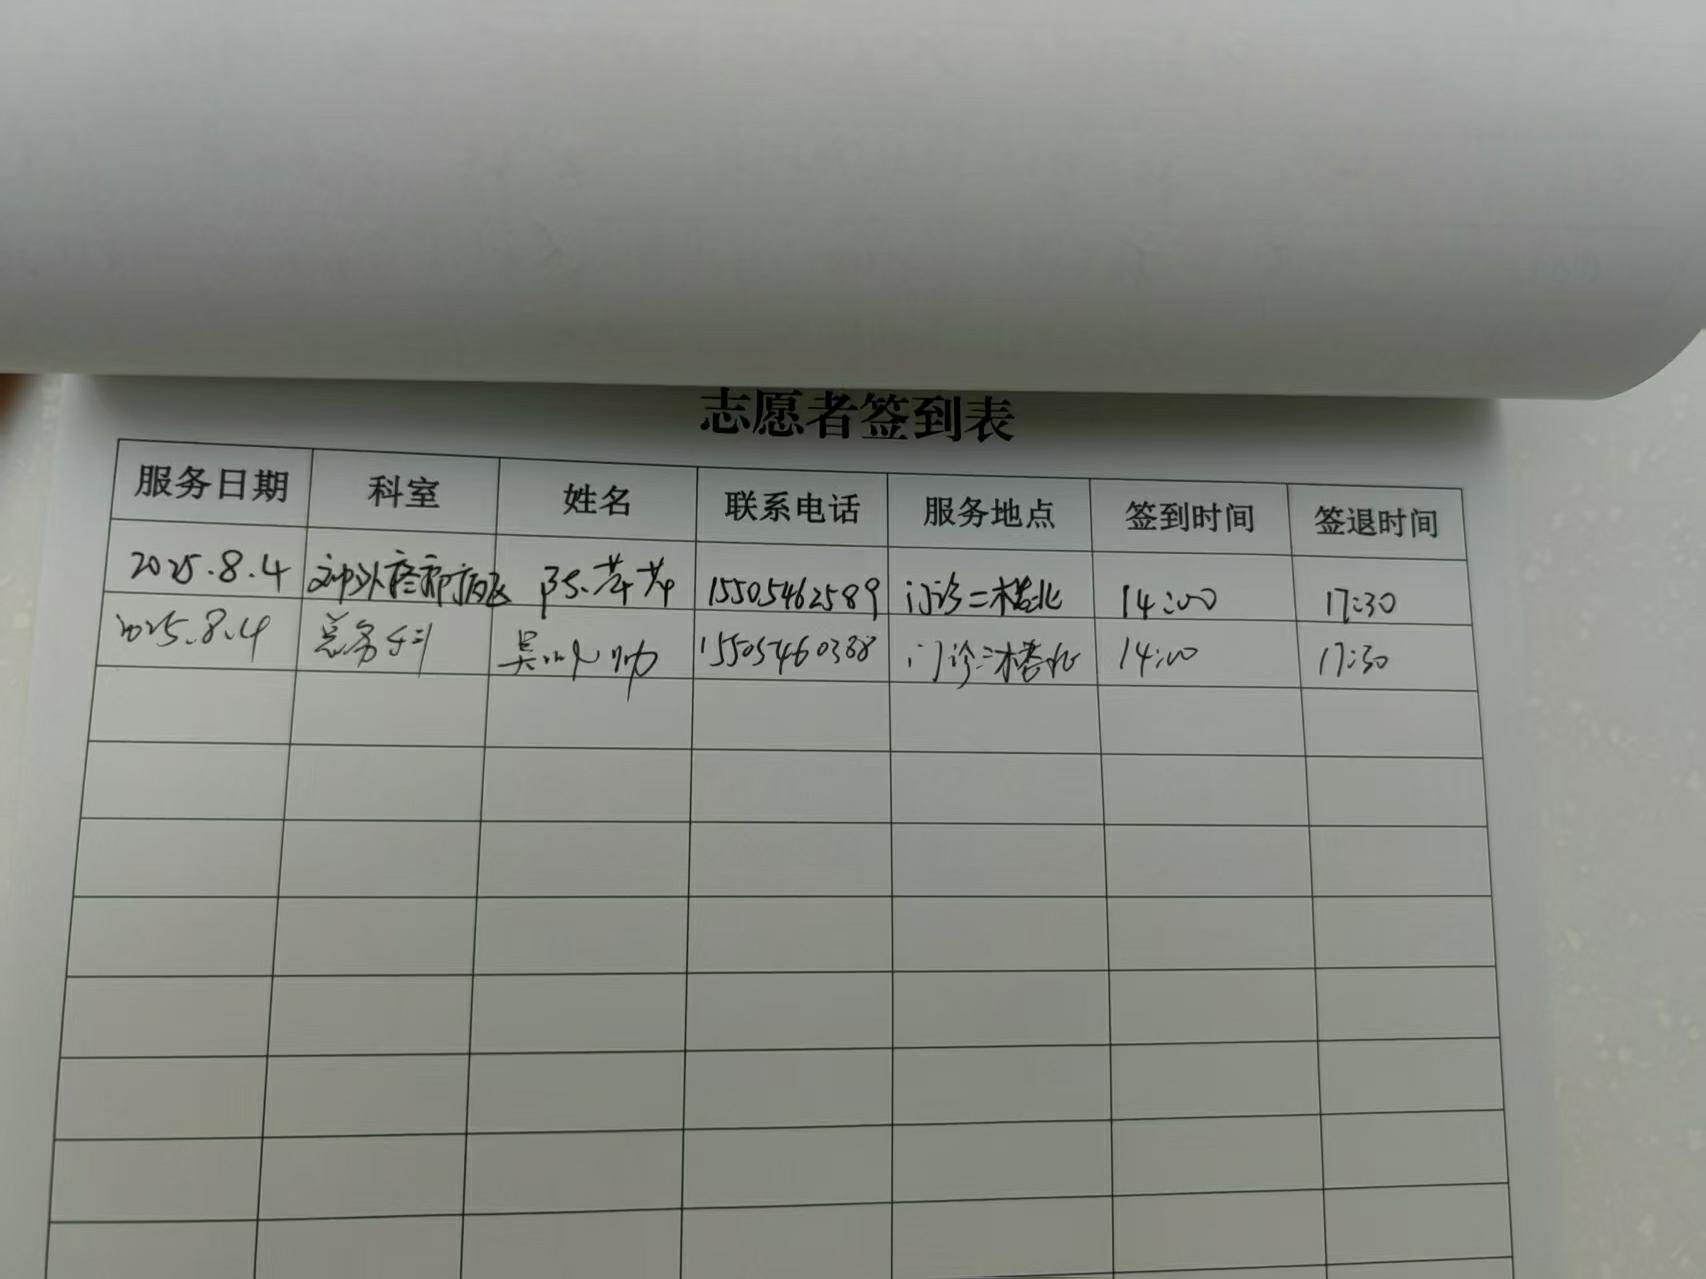 志愿者签到表
服务日期 科室 姓名 联系电话 服务地点 签到时间 签退时间
2025.8.4 陈 15505462589 门诊二楼北 14:00 17:30
2025.8.4 总务科 吴 帅 15505460388 门诊二楼北 14:00 17:30